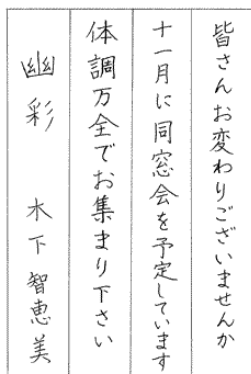 皆さんお変わりございませんか
十一月に同窓会を予定しています
体調万全でお集まり下さい
幽彩 木下智恵美